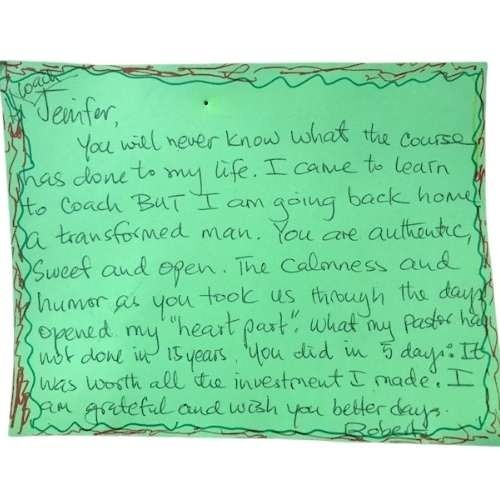 Coach
Jenifer,
You will never know what the course
has done to my life. I came to learn
to coach BUT I am going back home
a transformed man. You are authentic,
Sweet and open. The Calmness and
humor as you took us through the days
opened my "heart part". What my pastor has
not done in 15 years, you did in 5 days. It
was worth all the investment I made. I
am grateful and wish you better days.
Robert